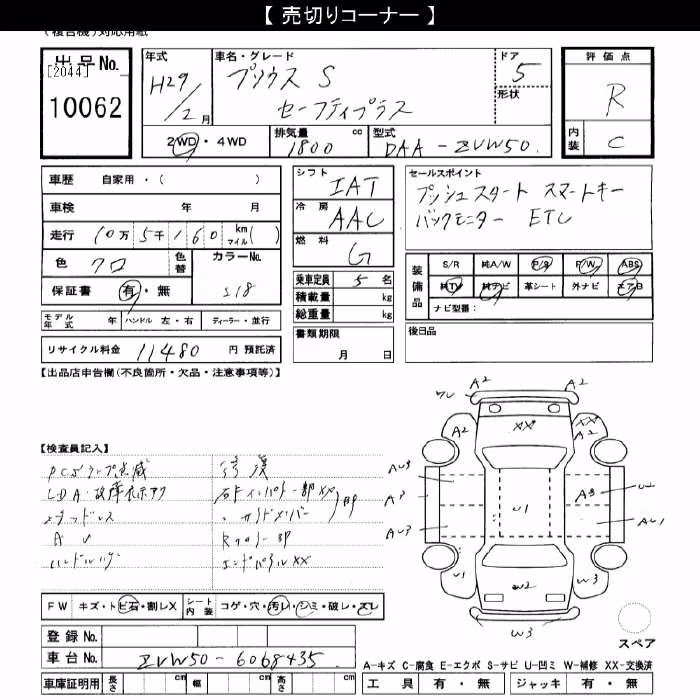 【 売切りコーナー 】
(複合機)対応用紙
出品No.
[2044]
10062
年式 H29/2月
車名・グレード プリウス S セーフティプラス
ドア 5
形状
評価点 R
内装 C
2WD・4WD
排気量 1800 cc
型式 DAA-ZVW50
車歴 自家用・( )
車検 年 月
走行 10万5千160 km マイル( )
色 クロ 色替 カラーNo. 218
保証書 有・無
モデル年式 年 ハンドル 左・右 ディーラー・並行
リサイクル料金 11480 円 預託済
シフト IAT
冷房 AAC
燃料 G
乗車定員 5 名
積載量 kg
総重量 kg
書類期限
月 日
セールスポイント
プッシュスタート スマートキー
バックモニター ETC
装備品
S/R 純A/W P/S P/W ABS
純TV 純ナビ 革シート 外ナビ エアB
ナビ型番:
後日品
【出品店申告欄(不良箇所・欠品・注意事項等)】
【検査員記入】
LDA 故障表示アリ
ハンドル
修復
右フィインパネル一部XX
サイドメンバー
Rフロアー
エンドパネルXX
FW キズ・トビ石・割レX
シート内装 コゲ・穴・汚レ・シミ・破レ・スレ
登録No.
車台No. ZVW50-6068435
車庫証明用 長さ cm 幅 cm 高さ cm
A2 A2
A2 XX XX A2
AU3
A3 U1 A3 U2
AU3 AU1
U1 W2 W3
W3
スペア
A-キズ C-腐食 E-エクボ S-サビ U-凹ミ W-補修 XX-交換済
工具 有・無 ジャッキ 有・無